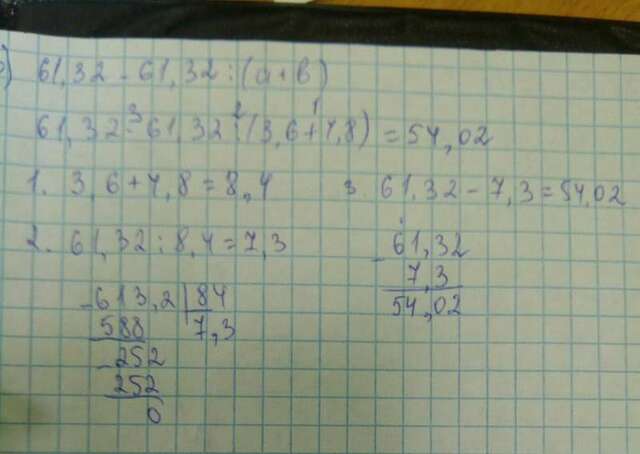 ) 61,32 - 61,32 : (a + b)
3 2 1
61,32 - 61,32 : (3,6 + 4,8) = 54,02
1. 3,6 + 4,8 = 8,4
3. 61,32 - 7,3 = 54,02
2. 61,32 : 8,4 = 7,3
- 613,2 | 84
588 7,3
- 252
252
0
- 61,32
7,3
54,02